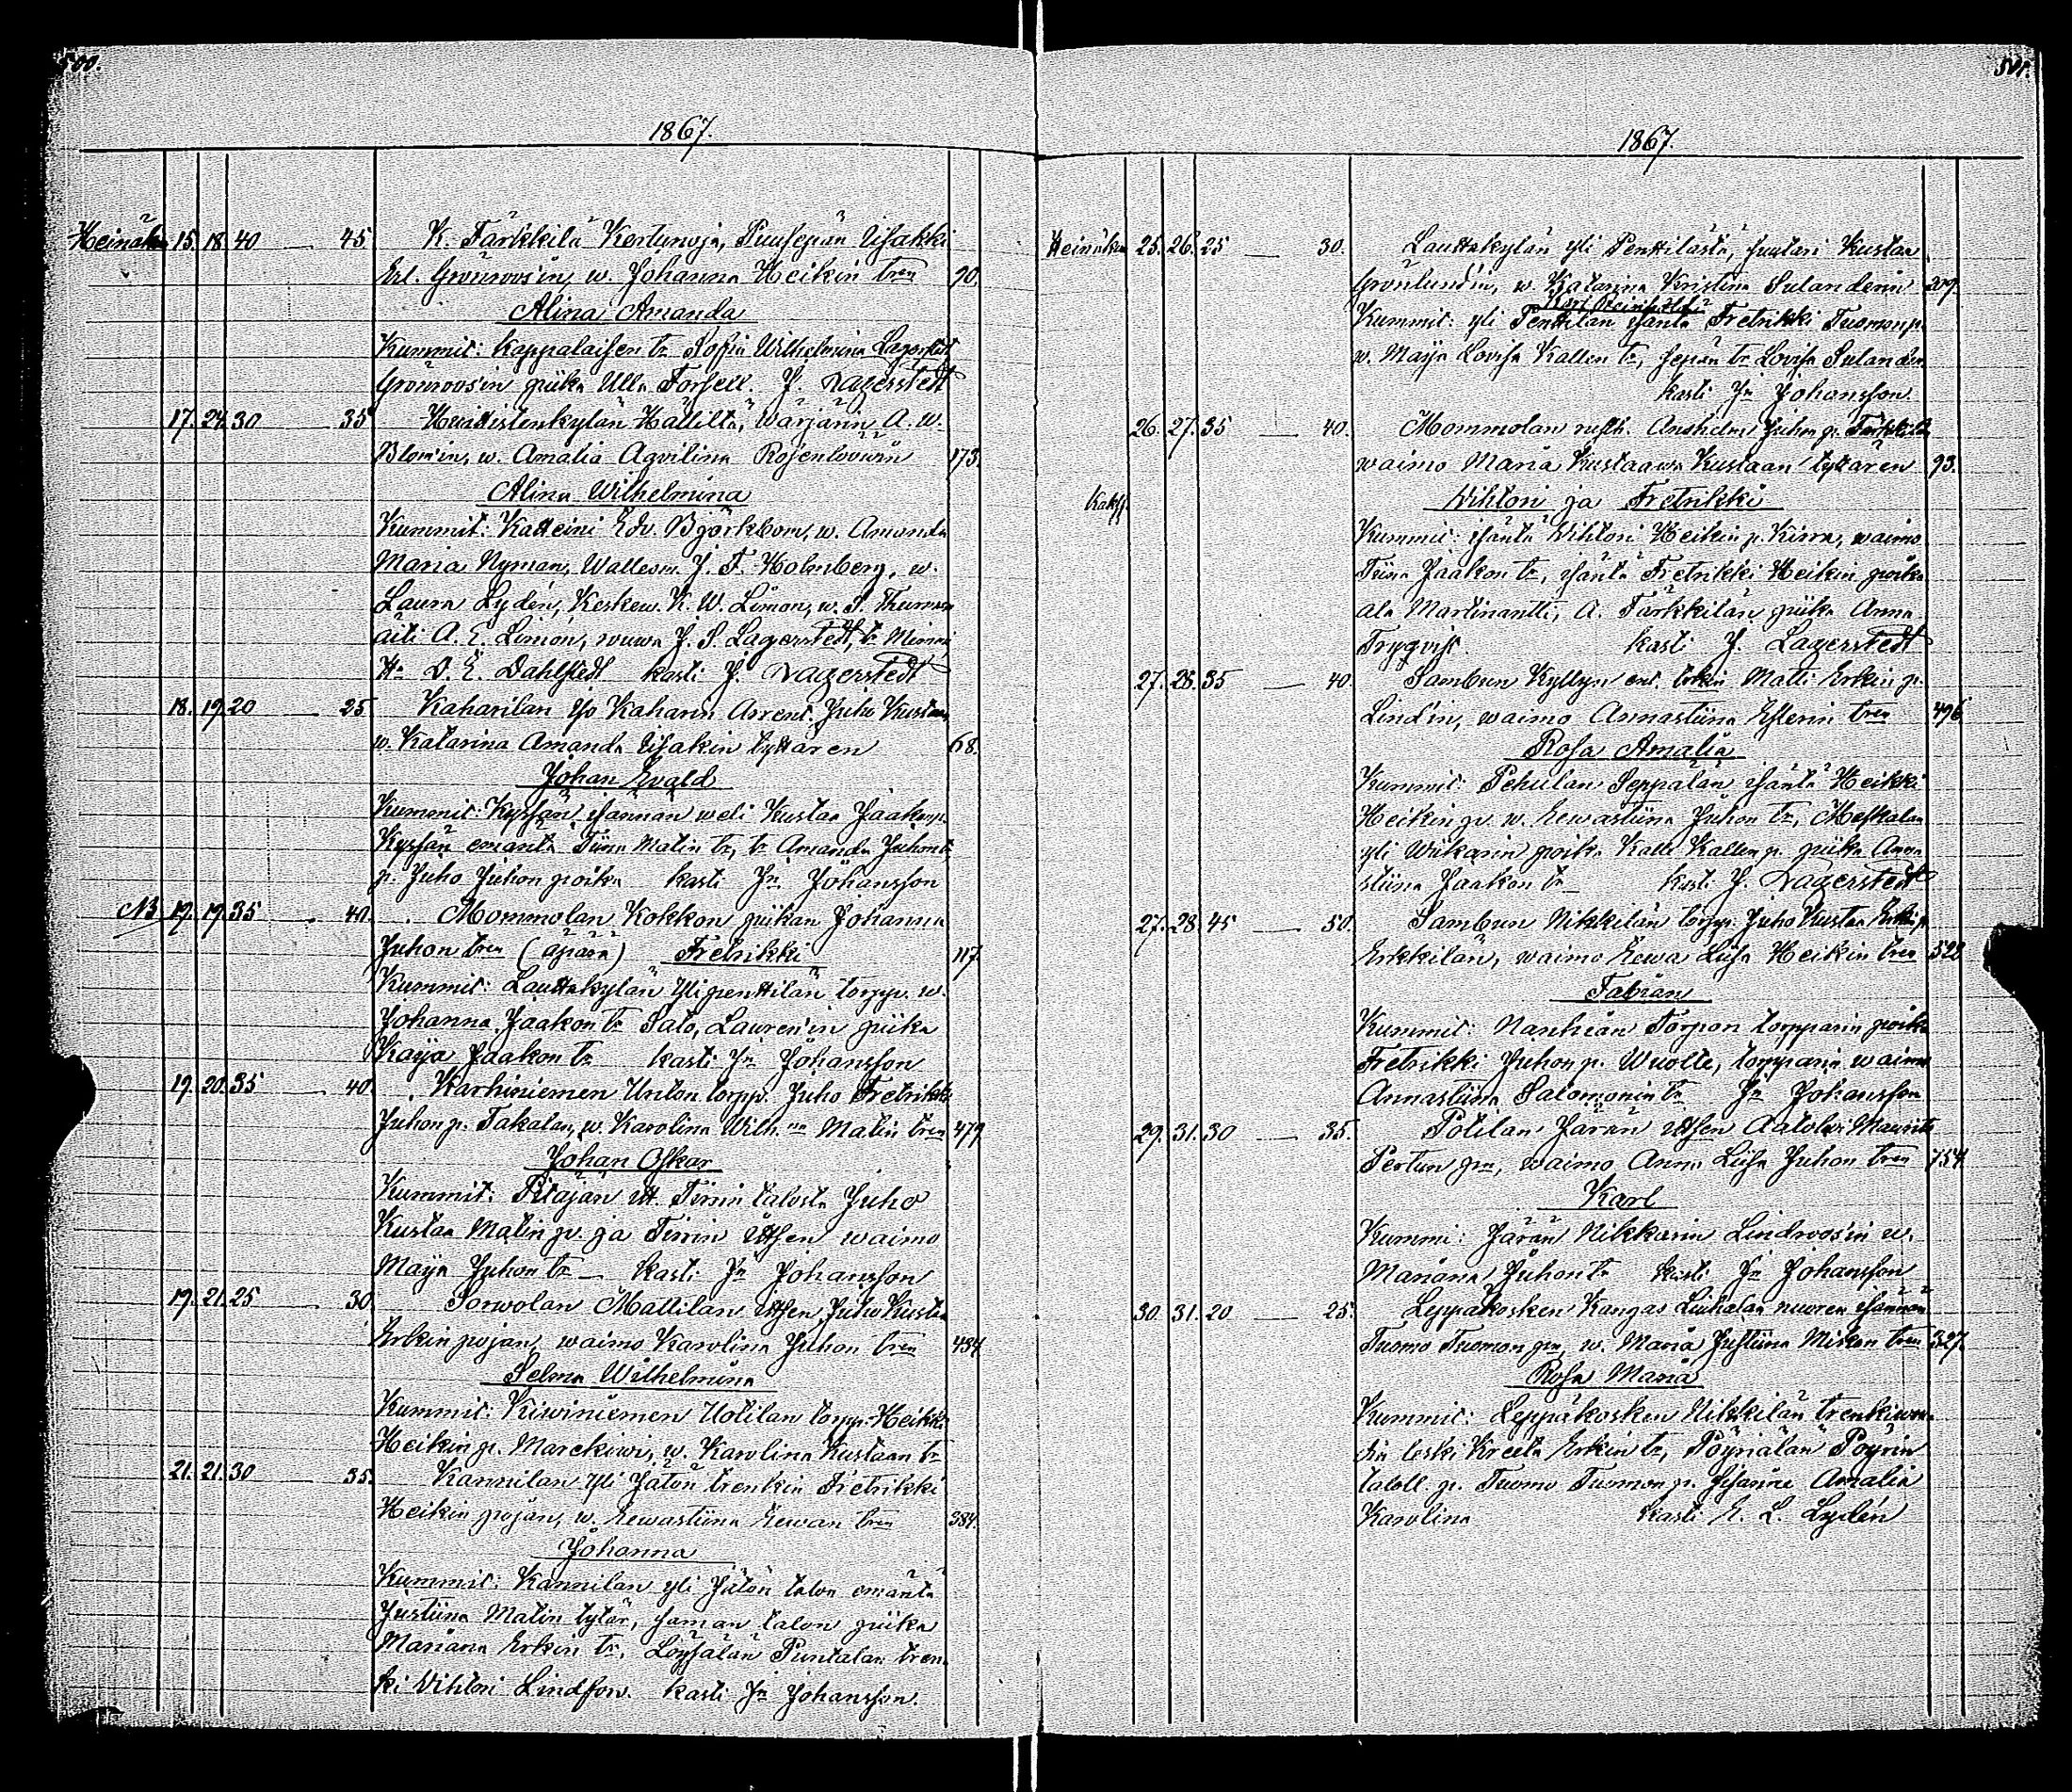 500.
1867.
Heinäkuu 15. 18. 40 — 45 K. Tärkkilä Kertunoja, Puusepän Iisakki
Erl. Grönroos'in, w. Johanna Heikin tren 90.
Alina Amanda
Kummit: kappalaisen tr Sofia Wilhelmina Lagerstedt
Grönroosin piika Ulla Forsell. J. Lagerstedt
17. 24. 30 — 35 Huittistenkylän Hällilta, wärjärin A. W.
Blom'in, w. Amalia Aqvilina Rosenlöwin 173.
Alina Wilhelmina
Kummit: Katteini Edv. Björkbom, w. Amanda
Maria Nyman, Wallesm. J. F. Holmberg, w.
Laura Lydén, Keskew. K. W. Limon, w. S. Thurman
äiti A. E. Limón, rouwa J. S. Lagerstedt, tr Mimmi
Hr D. E. Dahlstedt kasti J. Lagerstedt
18. 19. 20 — 25 Kaharilan Iso Kaharin Arrent. Juho Kustaan
w. Katarina Amanda Iisakin tyttären 68.
Johan Evald
Kummit: Kyssän isännän weli Kustaa Jaakonp.
Kyssän emäntä Tiina Matin tr, tr Amanda Juhontr,
p. Juho Juhon poika kasti Jn Johansson
NB 19. 19. 35 — 40. Mommolan Kokkon piikan Johanna
Juhon tren (äpärä) Fretrikki 117
Kummit: Lauttakylän Ylipenttilän torpp. w.
Johanna Jaakon tr Sato, Lauren'in piika
Kaija Jaakon tr kasti Jn Johansson
19. 20. 35 — 40. Karhiniemen Unton torpp. Juho Fretrikki
Juhon p. Takalan, w. Karolina Wilh.na Matin tren 479
Johan Oskar
Kummit: Pitäjän itt. Tirrin talosta Juho
Kustaa Matin p. ja Tirrin ittsen waimo
Maija Juhon tr — kasti Jn Johansson
19. 21. 25 — 30 Sorwolan Mattilan ittsen, Juho Kustaa
Erkin pojan, waimo Karolina Juhon tren 484
Selma Wilhelmina
Kummit: Kiwiniemen Uotilan torpp. Heikki
Heikin p. Marckiwi, w. Karolina Kustaan tr
21. 21. 30 — 35. Kannilan Yli Jaton trenkin Fretrikki
Heikin pojan, w. Eewastiina Eewan tren 384.
Johanna
Kummit: Kannilan yli Jaton talon emäntä
Justiina Matin tytär, saman talon piika
Mariana Erkin tr, Löysälän Puntalan tren-
ki Vihtori Lindfors. kasti Jn Johansson.
501.
1867.
Heinäkuu 25. 26. 25 — 30. Lauttakylän yli Penttilästä, suutari Kustaa
Grönlund'in, w. Katarina Kristina Sulanderin 209.
Karl Reinhold
Kummit: yli Penttilän isäntä Fretrikki Tuomon p.
w. Maija Lovisa Kallen tr, sepän tr Lovisa Sulander.
kasti Jn Johansson.
26. 27. 35 — 40. Mommolan rusth. Anshelm Juhon p. Tärkkilä
waimo Maria Kustaawa Kustaan tyttären 93.
Kaks.
Vihtori ja Fretrikki
Kummit: isäntä Vihtori Heikin p. Kirra, waimo
Tiina Jaakon tr, isäntä Fretrikki Heikin poika
ala Martinantti, A. Tärkkilän piika Anna
Trygvist. kasti J. Lagerstedt
27. 28. 35 — 40. Sammun Kyllyn ent. trkin Matti Erkin p.
Lind'in, waimo Annastiina Esterin tren 496
Rosa Amalia
Kummit: Pehulan Seppälän isäntä Heikki
Heikin p. w. Eewastiina Juhon tr, Meskalan
yli Wikarin poika Kalle Kallen p. piika Anna
stiina Jaakon tr kasti J. Lagerstedt
27. 28. 45 — 50. Sammun Nikkilän torpp. Juho Kustaa Erkin p.
Erkkilän, waimo Eewa Liisa Heikin tren 522
Fabian
Kummit: Nanhian Torpon torpparin poika
Fretrikki Juhon p. Wuolle, torpparin waimo
Annastiina Salomonin tr Jn Johansson
29. 31. 30 — 35. Potilan Järän ittsen Aatolwi Maurits
Pertun pn, waimo Anna Liisa Juhon tren 754
Karl
Kummi: Järän Nikkarin Lindroos'in w.
Mariana Juhon tr kasti Jn Johansson
30. 31. 20 — 25. Leppäkosken Kangas Liuhalan nuoren isännän
Tuomo Tuomon pn, w. Maria Justiina Mikon tren 327.
Rosa Maria
Kummit: Leppäkosken Nikkilän trenkiwou-
din leski Kreeta Erkin tr, Pöyriälän Pöyrin
taloll. p. Tuomo Tuomon p. sisarine Amalia
Karolina kasti E. L. Lydén